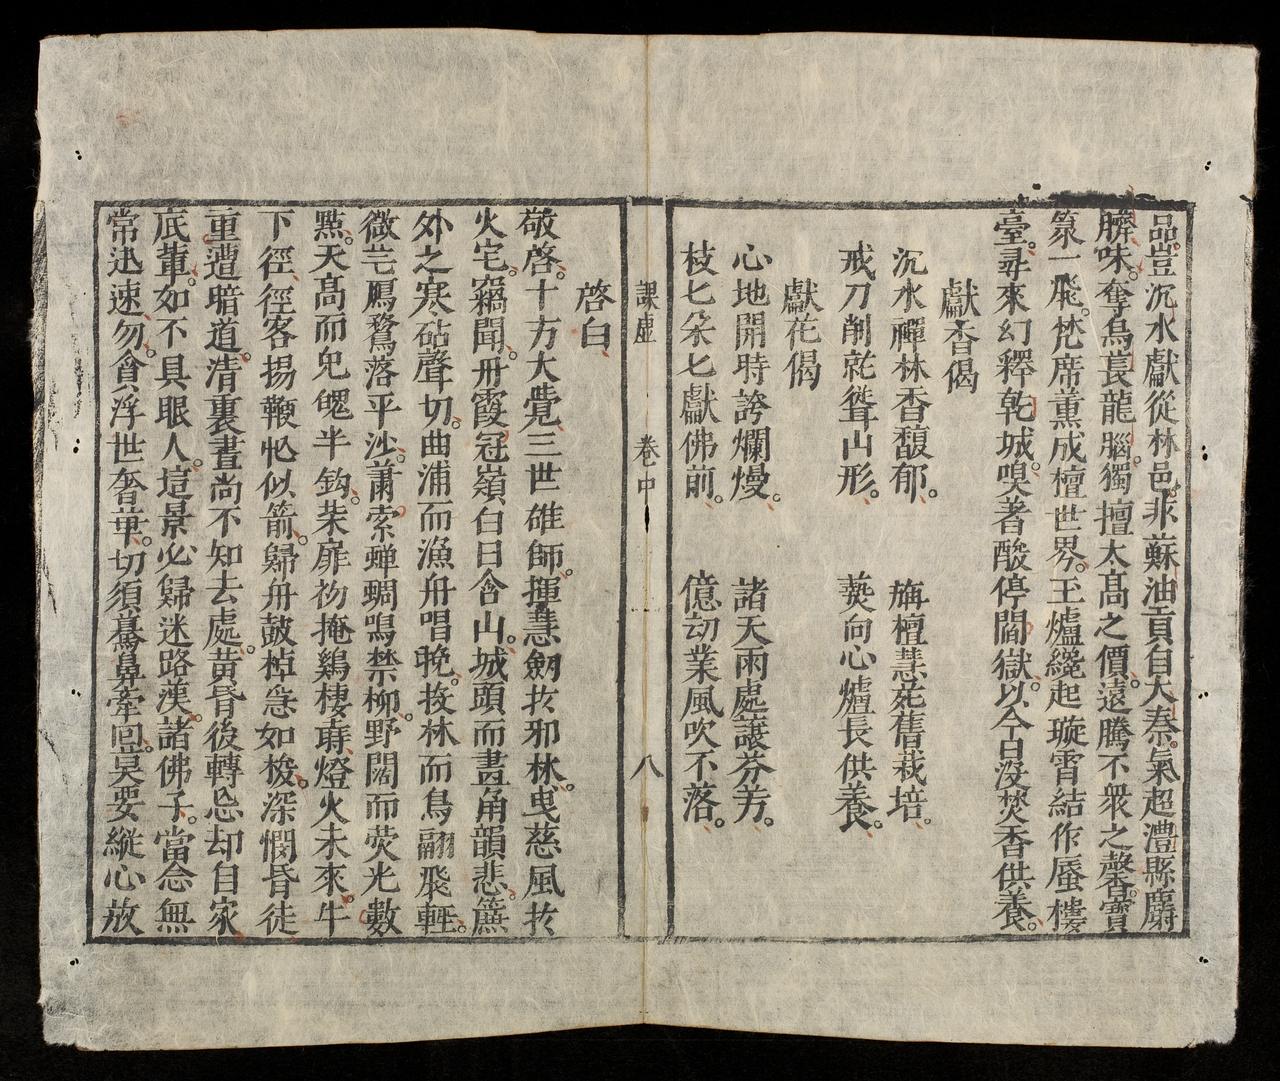 品豈沉水獻從林邑。非蘇油貢自大秦。氣超澧縣麝
臍味。奪烏萇龍腦。獨擅太高之價。遠騰不衆之馨。寶
篆一飛。梵席薰成檀世界。玉爐纔起璇霄結作蜃樓
臺。尋來幻釋乾城。嗅著酸停閻獄。以今日沒焚香供養。
獻香偈
沉水禪林香馥郁。　旃檀慧苑舊栽培。
戒刀削就聳山形。　爇向心爐長供養。
獻花偈
心地開時誇爛熳。　諸天雨處讓芬芳。
枝匕朵匕獻佛前。　億劫業風吹不落。
課虛　卷中　八
啓白
敬啓。十方大覺。三世雄師。揮慧劔扵邪林。曳慈風扵
火宅。竊聞。丹霞冠嶺白日含山。城頭而畫角韻悲。簾
外之寒砧聲切。曲浦而漁舟唱晚。投林而鳥翮飛輕。
微茫鴈鶩落平沙。蕭索蟬蜩鳴禁柳。野闊而荧光數
點。天高而兔魄半鈎。柴扉初掩鷄棲塒。燈火未來。牛
下徑。徑客揚鞭忙似箭。歸舟鼓棹急如梭。深憫昏徒
重遭暗道。清裏晝尚不知去處。黃昏後轉忘却自家
底董。如不具眼人。這景必歸迷路漢。諸佛子。當念無
常迅速。勿貪浮世奢華。切須驀鼻牽囬。莫要縱心放